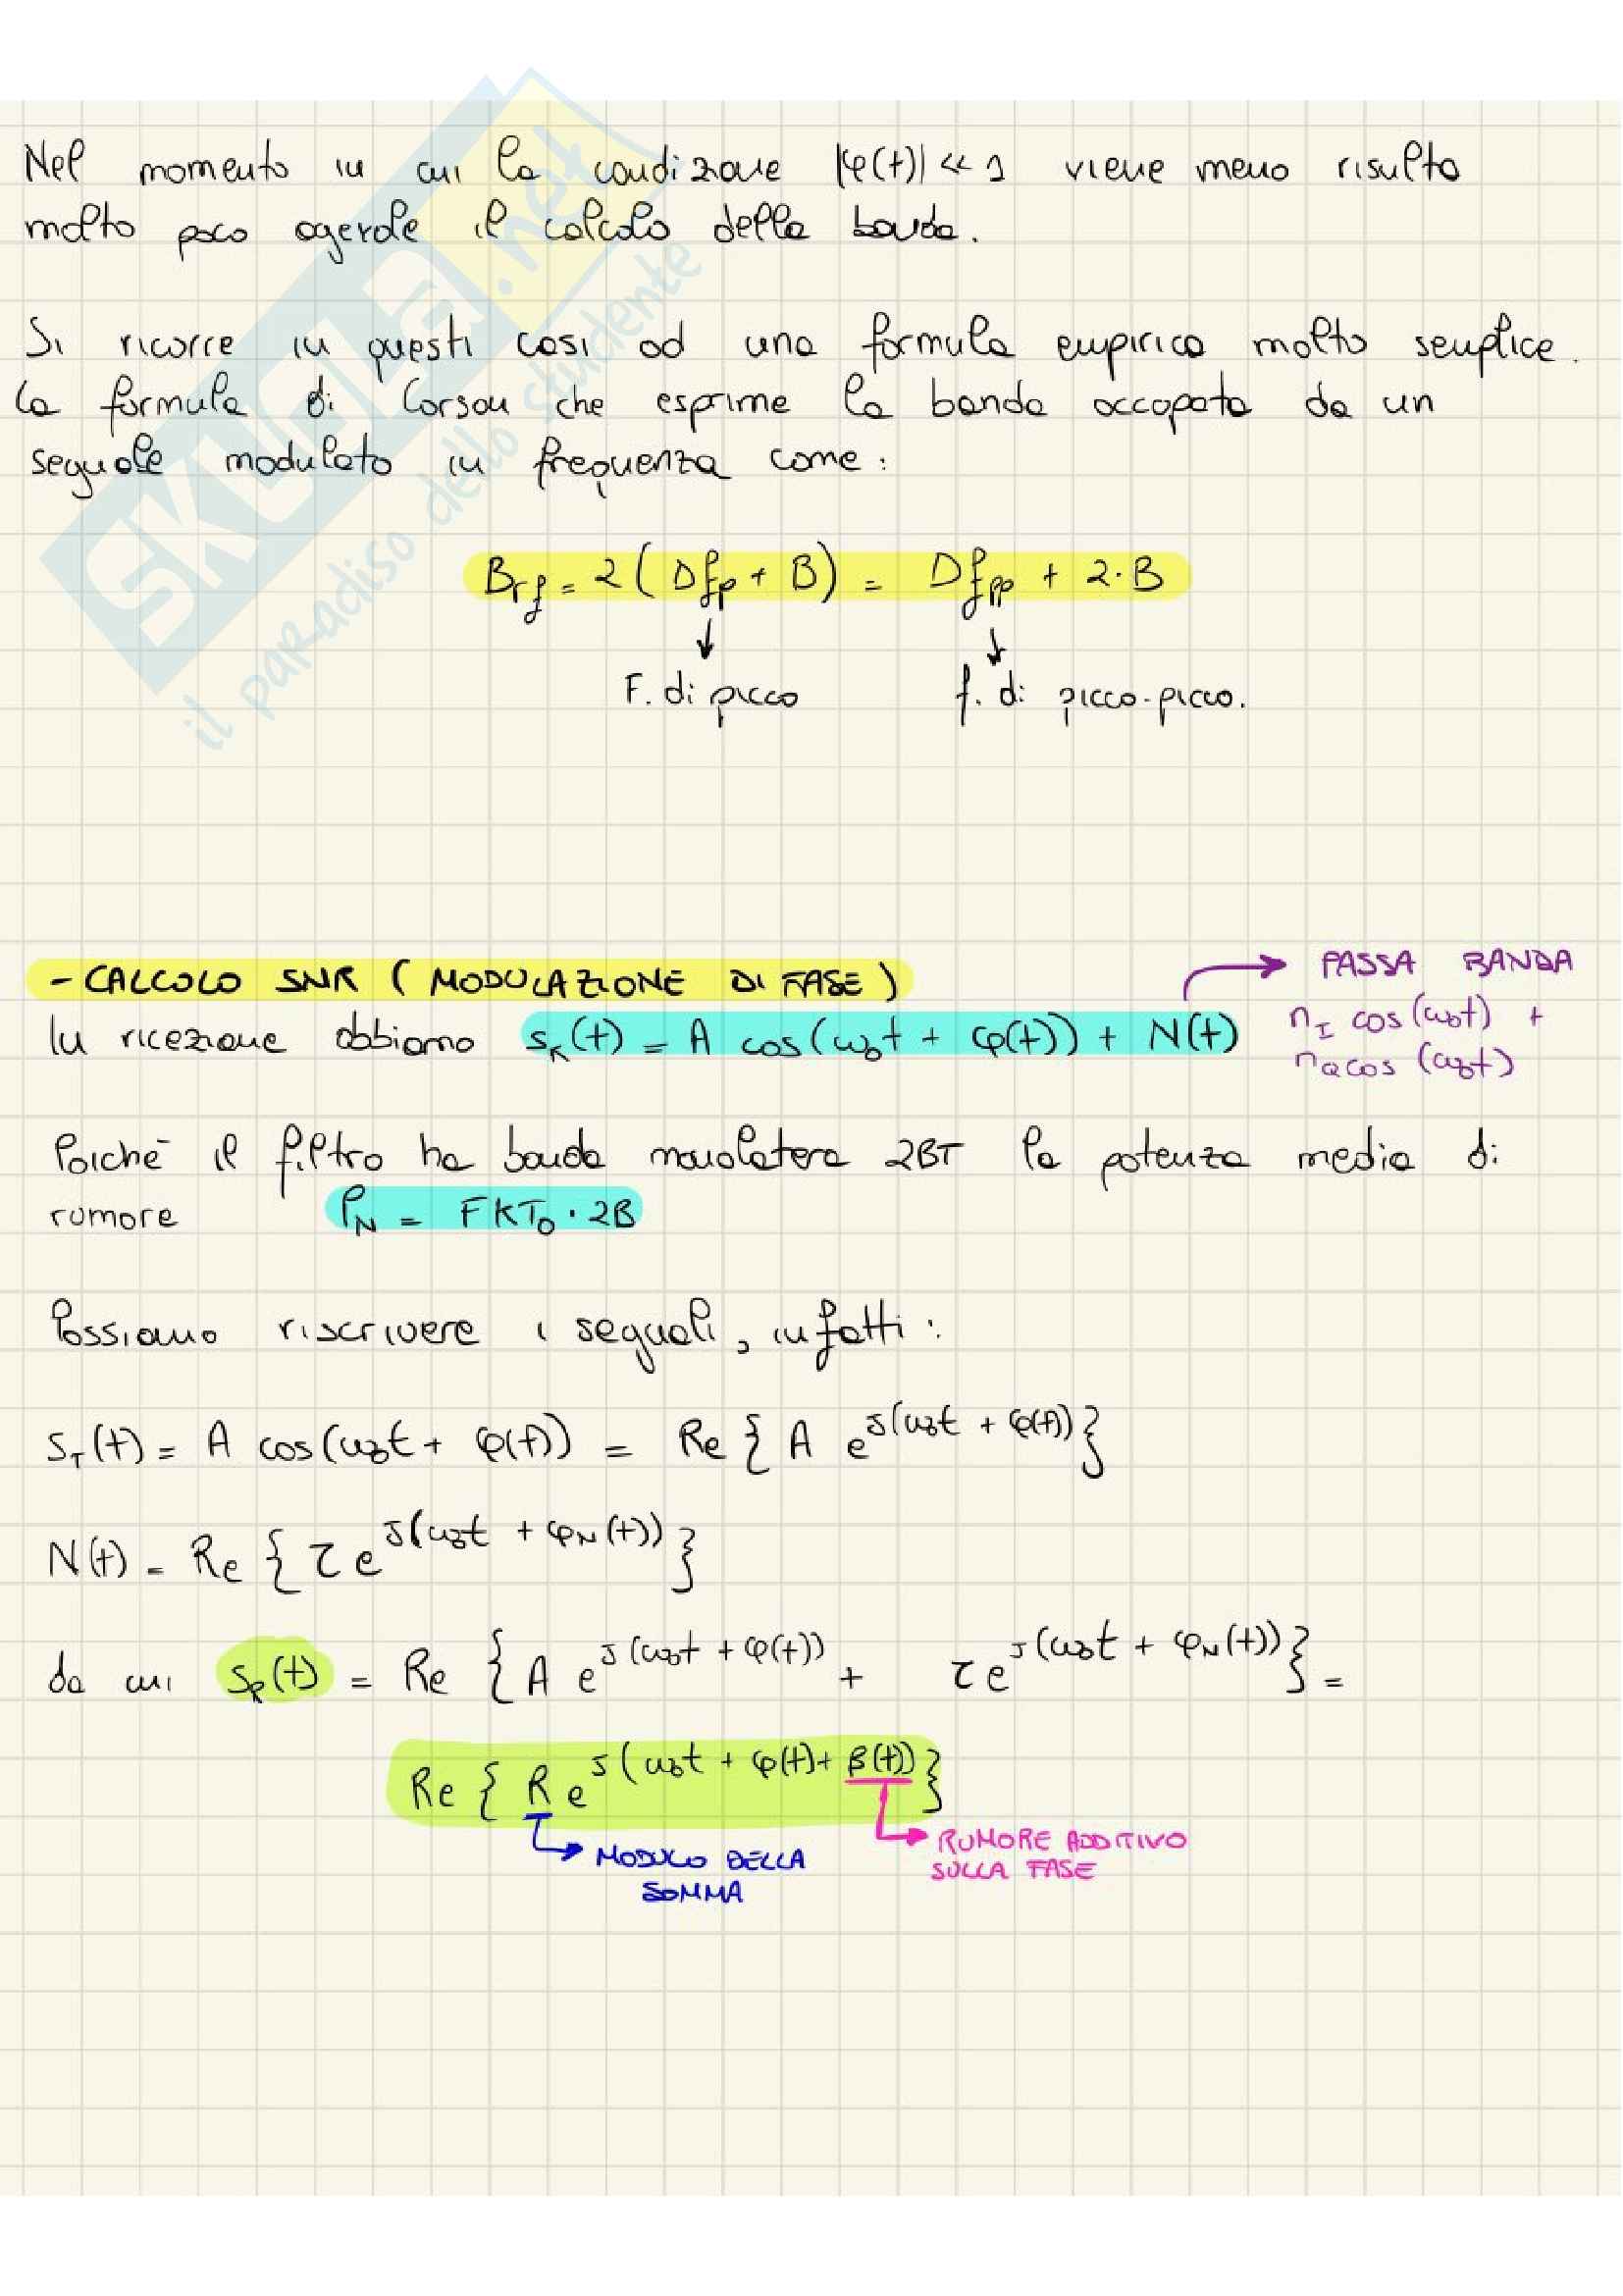 Nel momento in cui la condizione |φ(t)| << 1 viene meno risulta
molto poco agevole il calcolo della banda.
Si ricorre in questi casi ad una formula empirica molto semplice.
La formula di Carson che esprime la banda occupata da un
segnale modulato in frequenza come:
Brf = 2 (Dfp + B) = Dfpp + 2·B
F. di picco f. di picco-picco.
- CALCOLO SNR (MODULAZIONE DI FASE)
PASSA BANDA
In ricezione abbiamo sR(t) = A cos(ω0t + φ(t)) + N(t)
nI cos(ω0t) +
nQ cos(ω0t)
Poiché il filtro ha banda monolatera 2BT la potenza media di
rumore PN = FKT0 · 2B
Possiamo riscrivere i segnali, infatti:
sT(t) = A cos(ω0t + φ(t)) = Re { A e^J(ω0t + φ(t)) }
N(t) = Re { τ e^J(ω0t + φN(t)) }
da cui sR(t) = Re { A e^J(ω0t + φ(t)) + τ e^J(ω0t + φN(t)) } =
Re { R e^J(ω0t + φ(t) + β(t)) }
MODULO DELLA
SOMMA
RUMORE ADDITIVO
SULLA FASE
SKUOLA.net
il paradiso dello studente